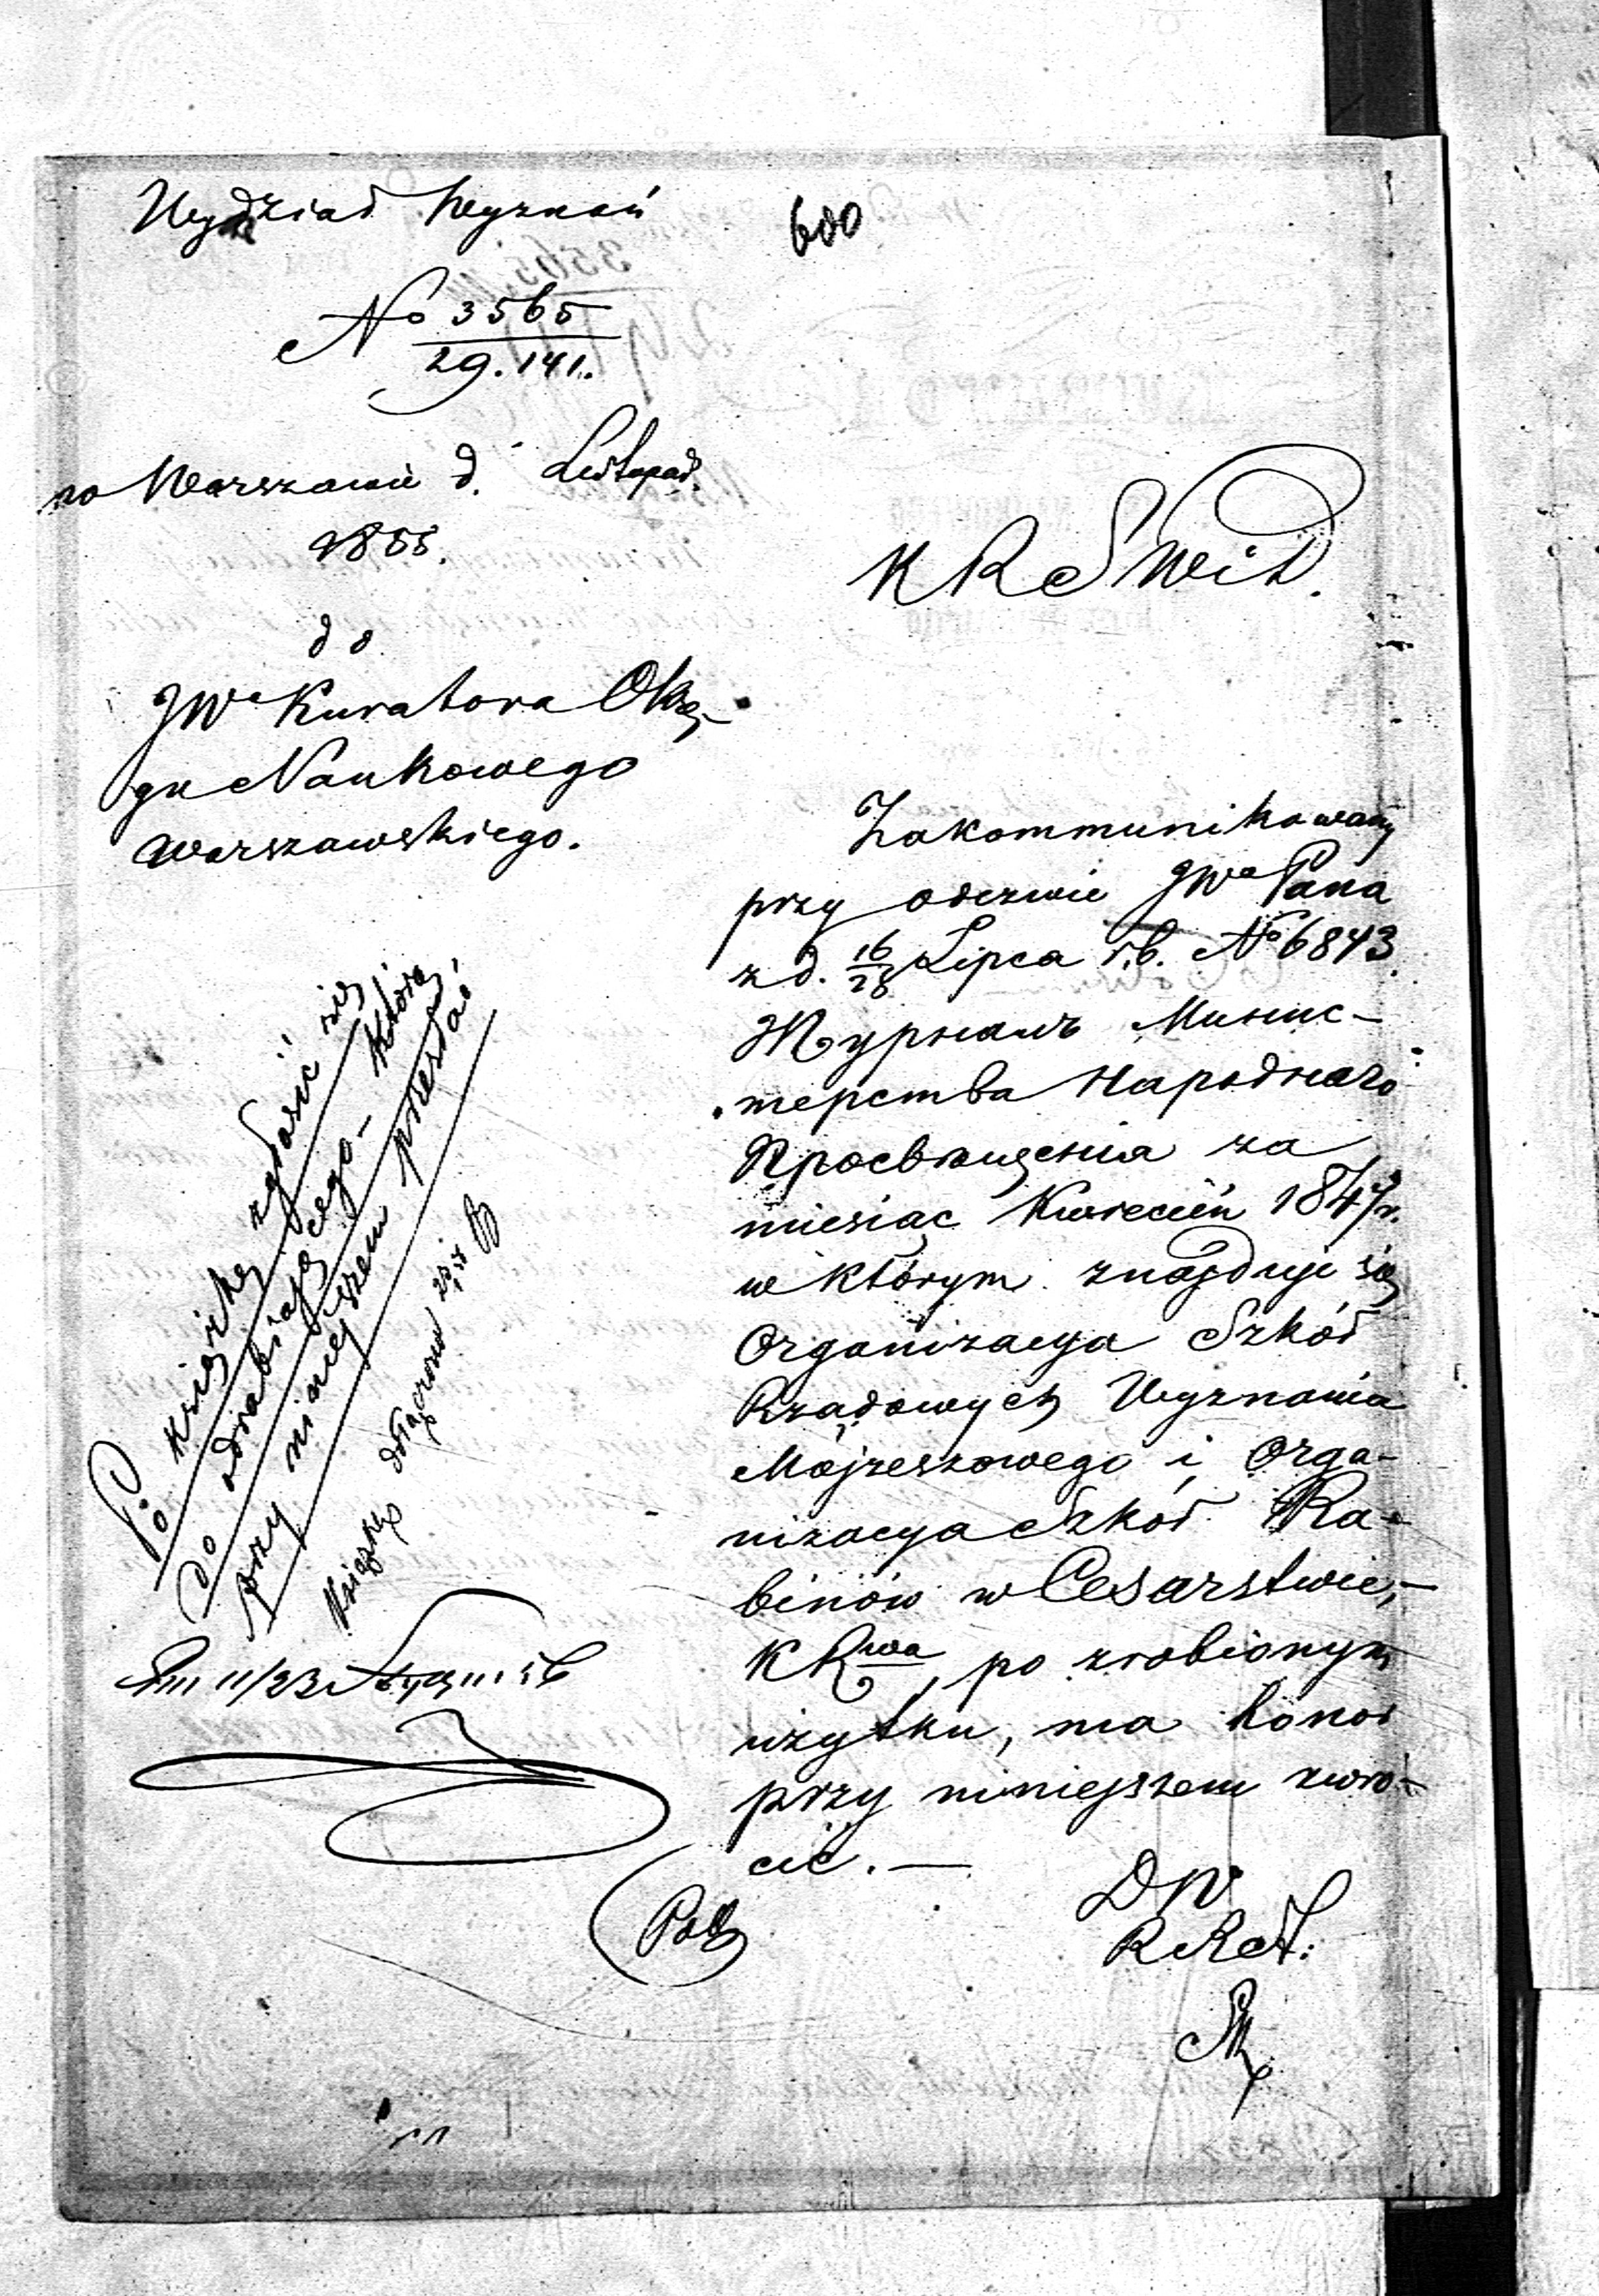 Wydział Wyznań
600
No 3565
29.141.
w Warszawie d. Listopad.
1855.
do
JWo Kuratora Okrę-
gu Naukowego
Warszawskiego.
K R S W i D.
Zakommunikowany
przy odezwie JWo Pana
z d. 16/28 Lipca r.b. No 6843
Журналъ Минис-
терства Народнаго
Просвѣщенія za
miesiąc Kwiecień 1847 r.
w którym znajduje się
Organizacya Szkół
Rządowych Wyznania
Mojżeszowego i Orga-
nizacya Szkół Ra-
binów w Cesarstwie,-
K Rwa, po zrobionym
użytku, ma honor
przy niniejszem zwró-
cić. —
DW
R R St:
Po książkę zgłosić się
do odrabiającego - którą
przy niniejszem przesłać
Książkę dołączono
11/23